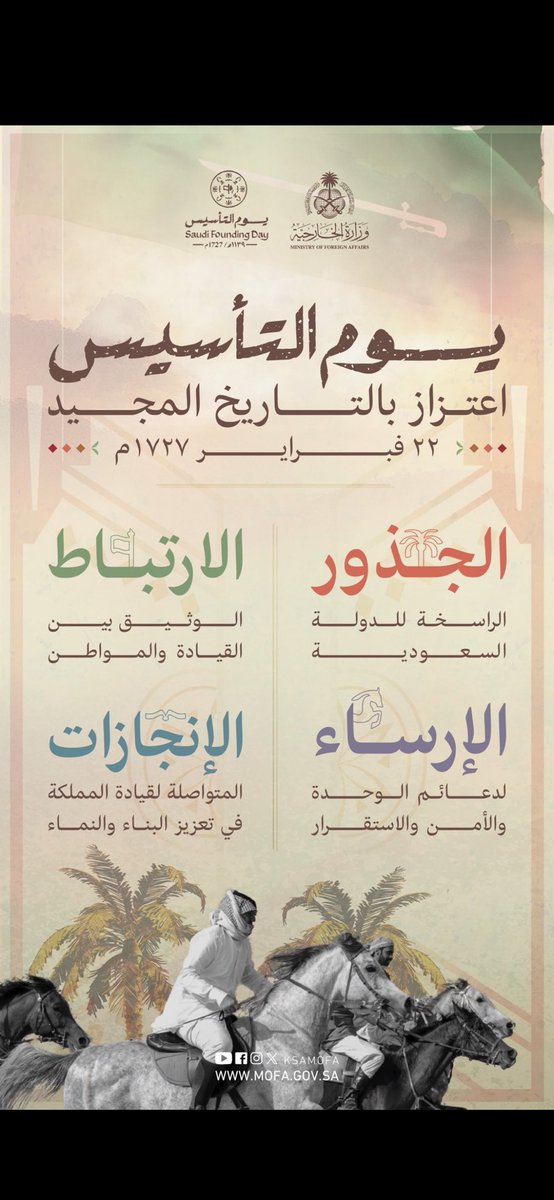 وزارة الخارجية
MINISTRY OF FOREIGN AFFAIRS
يوم التأسيس
Saudi Founding Day
١١٣٩هـ/ 1727م
يوم التأسيس
اعتزاز بالتاريخ المجيد
٢٢ فبراير ١٧٢٧م
الجذور
الراسخة للدولة
السعودية
الارتباط
الوثيق بين
القيادة والمواطن
الإرساء
لدعائم الوحدة
والأمن والاستقرار
الإنجازات
المتواصلة لقيادة المملكة
في تعزيز البناء والنماء
KSAMOFA
WWW.MOFA.GOV.SA